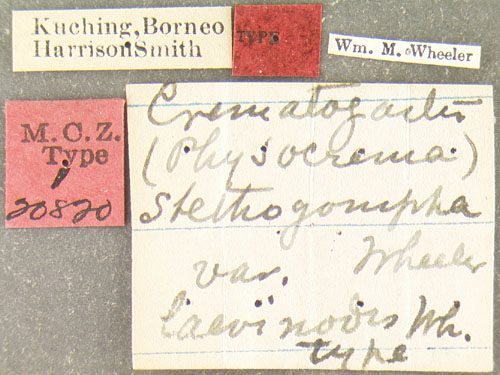 Kuching, Borneo
Harrison Smith
TYPE
Wm. M. Wheeler
M.C.Z.
Type
1
20820
Crematogaster
(Physocrema)
stethogompha
var. Wheeler
laevinodis Wh.
type